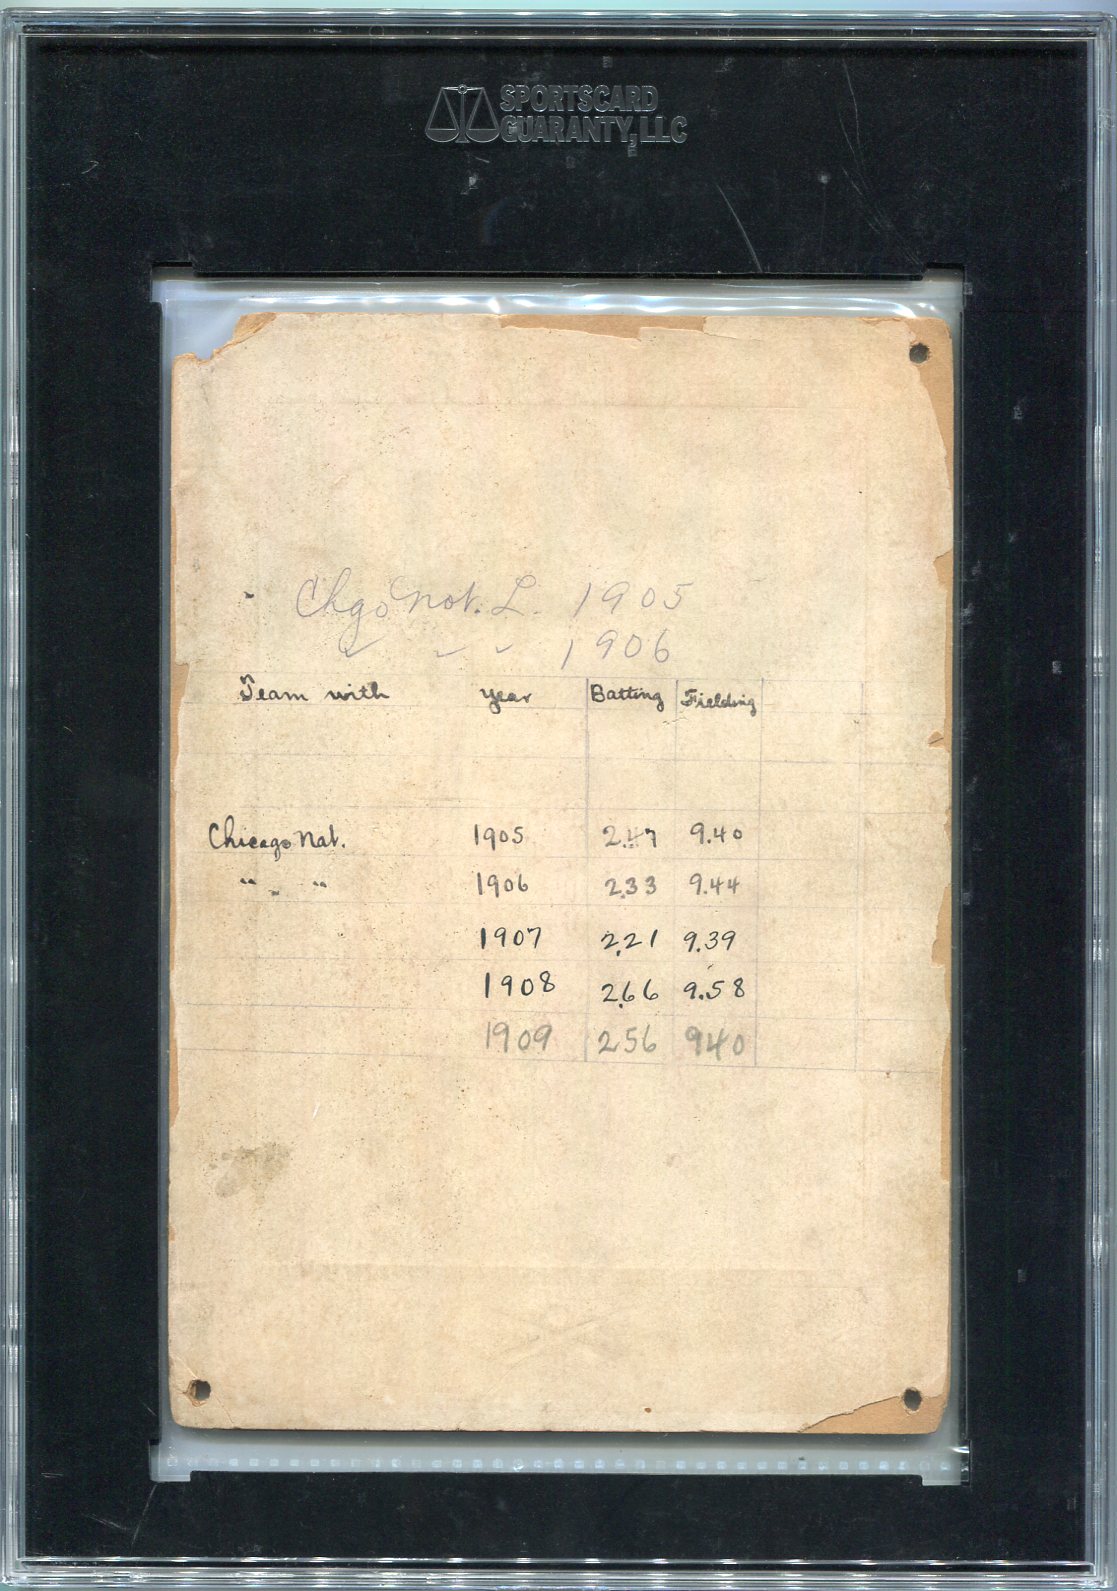 SPORTSCARD
GUARANTY, LLC
Chgo Nat. L. 1905
" " " 1906
Team with Year Batting Fielding
Chicago Nat. 1905 2.47 9.40
" " " 1906 2.33 9.44
1907 2.21 9.39
1908 2.66 9.58
1909 256 940